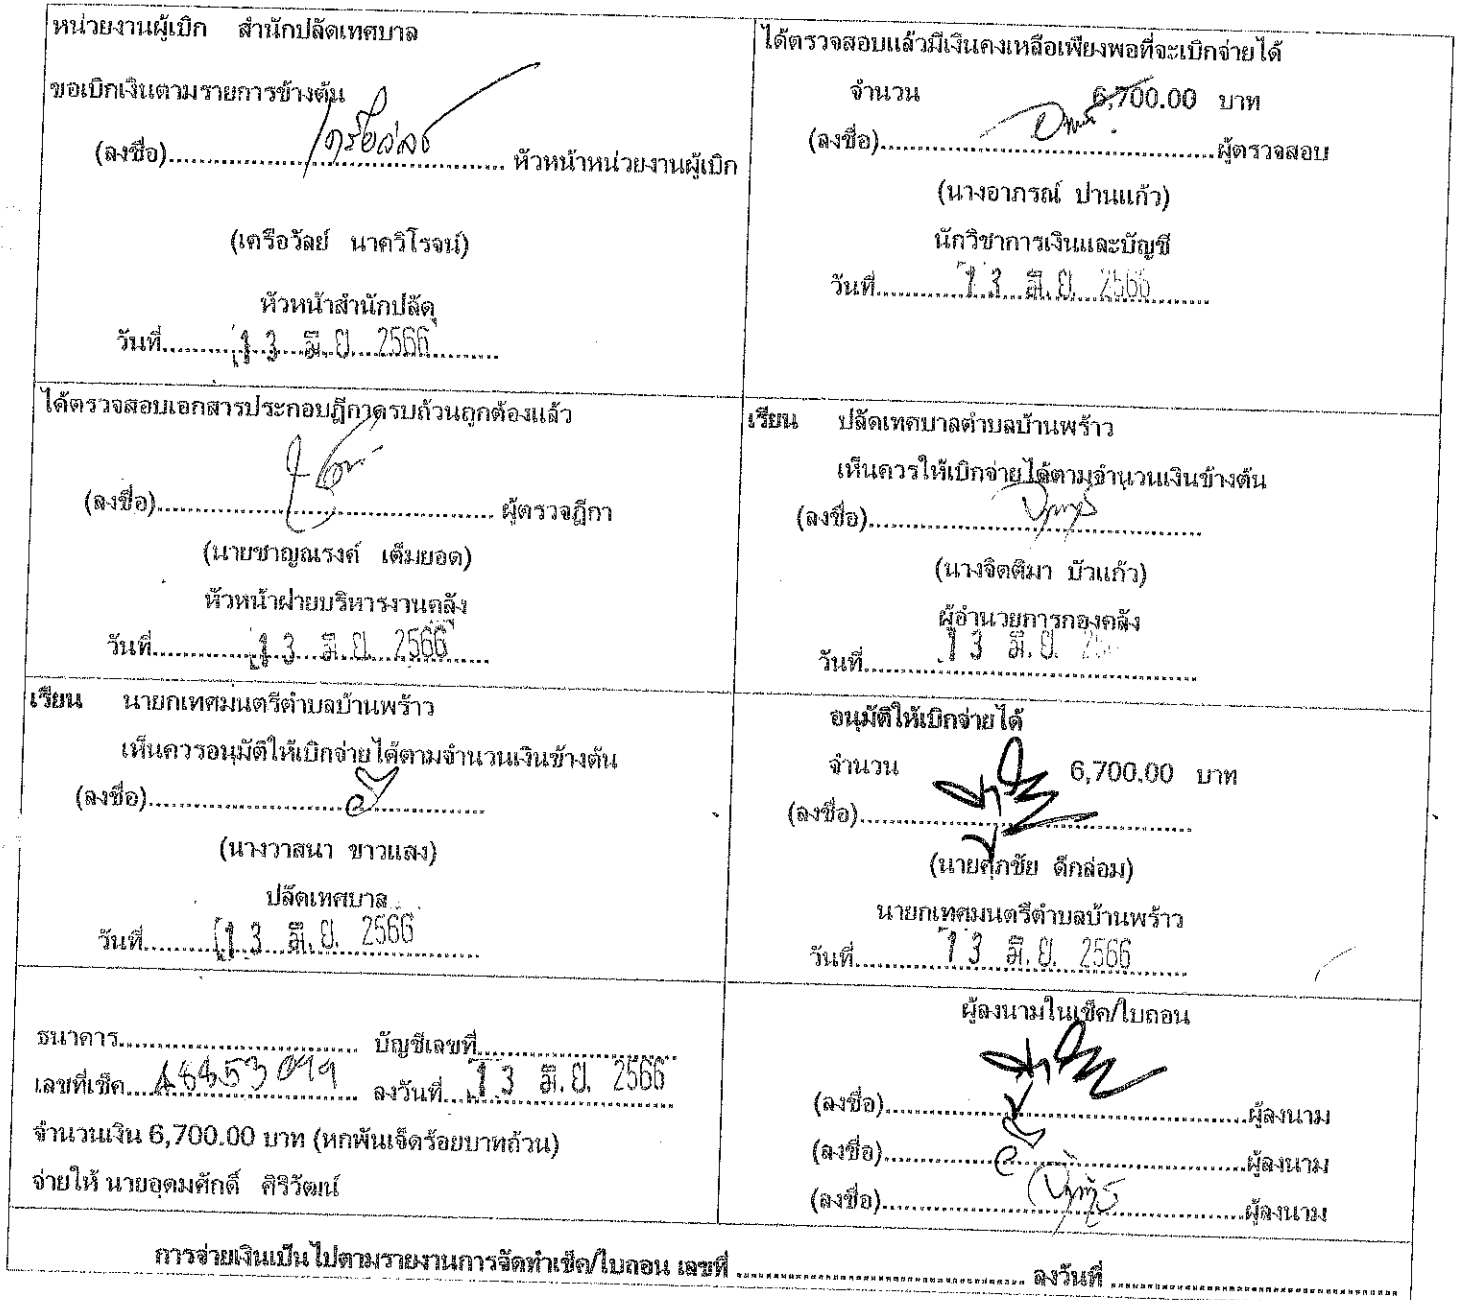 หน่วยงานผู้เบิก สำนักปลัดเทศบาล
ขอเบิกเงินตามรายการข้างต้น
(ลงชื่อ).................... หัวหน้าหน่วยงานผู้เบิก
(เครือวัลย์ นาควิโรจน์)
หัวหน้าสำนักปลัด
วันที่..........13 มิ.ย. 2566..........
ได้ตรวจสอบแล้วมีเงินคงเหลือเพียงพอที่จะเบิกจ่ายได้
จำนวน 6,700.00 บาท
(ลงชื่อ)....................ผู้ตรวจสอบ
(นางอาภรณ์ ปานแก้ว)
นักวิชาการเงินและบัญชี
วันที่..........13 มิ.ย. 2566..........
ได้ตรวจสอบเอกสารประกอบฎีกาครบถ้วนถูกต้องแล้ว
(ลงชื่อ).................... ผู้ตรวจฎีกา
(นายชาญณรงค์ เต็มยอด)
หัวหน้าฝ่ายบริหารงานคลัง
วันที่..........13 มิ.ย. 2566..........
เรียน ปลัดเทศบาลตำบลบ้านพร้าว
เห็นควรให้เบิกจ่ายได้ตามจำนวนเงินข้างต้น
(ลงชื่อ)....................
(นางจิตติมา บัวแก้ว)
ผู้อำนวยการกองคลัง
วันที่..........13 มิ.ย. ..........
เรียน นายกเทศมนตรีตำบลบ้านพร้าว
เห็นควรอนุมัติให้เบิกจ่ายได้ตามจำนวนเงินข้างต้น
(ลงชื่อ)....................
(นางวาสนา ขาวแสง)
ปลัดเทศบาล
วันที่..........13 มิ.ย. 2566..........
อนุมัติให้เบิกจ่ายได้
จำนวน 6,700.00 บาท
(ลงชื่อ)....................
(นายศุภชัย ดีกล่อม)
นายกเทศมนตรีตำบลบ้านพร้าว
วันที่..........13 มิ.ย. 2566..........
ธนาคาร.................... บัญชีเลขที่....................
เลขที่เช็ค.................... ลงวันที่....13 มิ.ย. 2566....
จำนวนเงิน 6,700.00 บาท (หกพันเจ็ดร้อยบาทถ้วน)
จ่ายให้ นายอุดมศักดิ์ ศิริวัฒน์
ผู้ลงนามในเช็ค/ใบถอน
(ลงชื่อ)....................ผู้ลงนาม
(ลงชื่อ)....................ผู้ลงนาม
(ลงชื่อ)....................ผู้ลงนาม
การจ่ายเงินเป็นไปตามรายงานการจัดทำเช็ค/ใบถอน เลขที่ .................... ลงวันที่ ....................